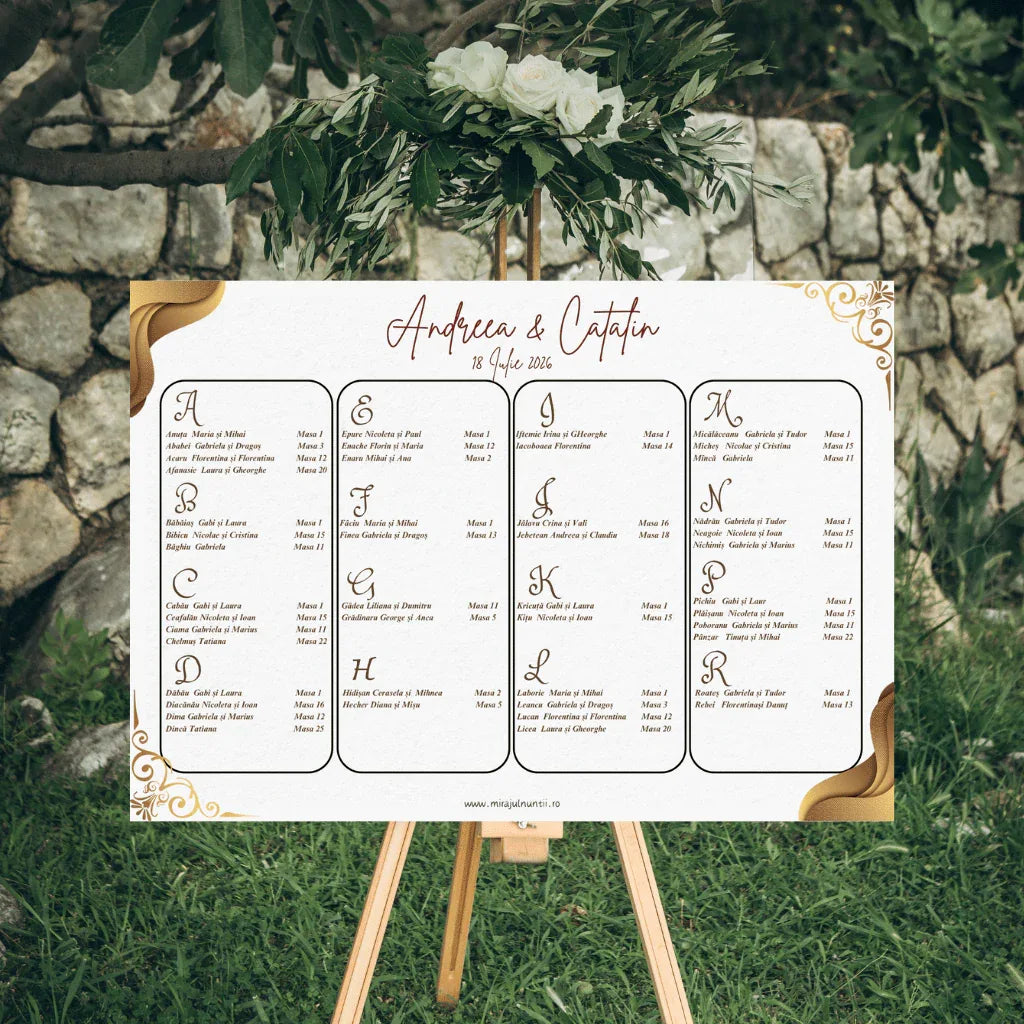 Andreea & Catalin
18 Iulie 2026
A
Anuța Maria și Mihai Masa 1
Ababei Gabriela și Dragoș Masa 3
Acaru Florentina și Florentina Masa 12
Afanasie Laura și Gheorghe Masa 20
B
Băbăiaș Gabi și Laura Masa 1
Bibicu Nicolae și Cristina Masa 15
Băghiu Gabriela Masa 11
C
Cabău Gabi și Laura Masa 1
Ceafalău Nicoleta și Ioan Masa 15
Ciama Gabriela și Marius Masa 11
Chelmuș Tatiana Masa 22
D
Dăbău Gabi și Laura Masa 1
Diacănău Nicoleta și Ioan Masa 16
Dima Gabriela și Marius Masa 12
Dincă Tatiana Masa 25
E
Epure Nicoleta și Paul Masa 1
Enache Florin și Maria Masa 12
Enaru Mihai și Ana Masa 2
F
Făciu Maria și Mihai Masa 1
Finea Gabriela și Dragoș Masa 13
G
Gădea Liliana și Dumitru Masa 11
Grădinaru George și Anca Masa 5
H
Hidișan Cerasela și Mihnea Masa 2
Hecher Diana și Mișu Masa 5
I
Iftemie Irina și GHeorghe Masa 1
Iacoboaea Florentina Masa 14
J
Jălavu Crina și Vali Masa 16
Jebetean Andreea și Claudiu Masa 18
K
Kricuță Gabi și Laura Masa 1
Kițu Nicoleta și Ioan Masa 15
L
Laborie Maria și Mihai Masa 1
Leancu Gabriela și Dragoș Masa 3
Lucan Florentina și Florentina Masa 12
Licea Laura și Gheorghe Masa 20
M
Micălăceanu Gabriela și Tudor Masa 1
Micheș Nicolae și Cristina Masa 15
Mincă Gabriela Masa 11
N
Nădrău Gabriela și Tudor Masa 1
Neagoie Nicoleta și Ioan Masa 15
Nichimiș Gabriela și Marius Masa 11
P
Pichiu Gabi și Laur Masa 1
Plăișanu Nicoleta și Ioan Masa 15
Pohoranu Gabriela și Marius Masa 11
Pânzar Tinuța și Mihai Masa 22
R
Roateș Gabriela și Tudor Masa 1
Rebei Florentinași Danuț Masa 13
www.mirajulnuntii.ro